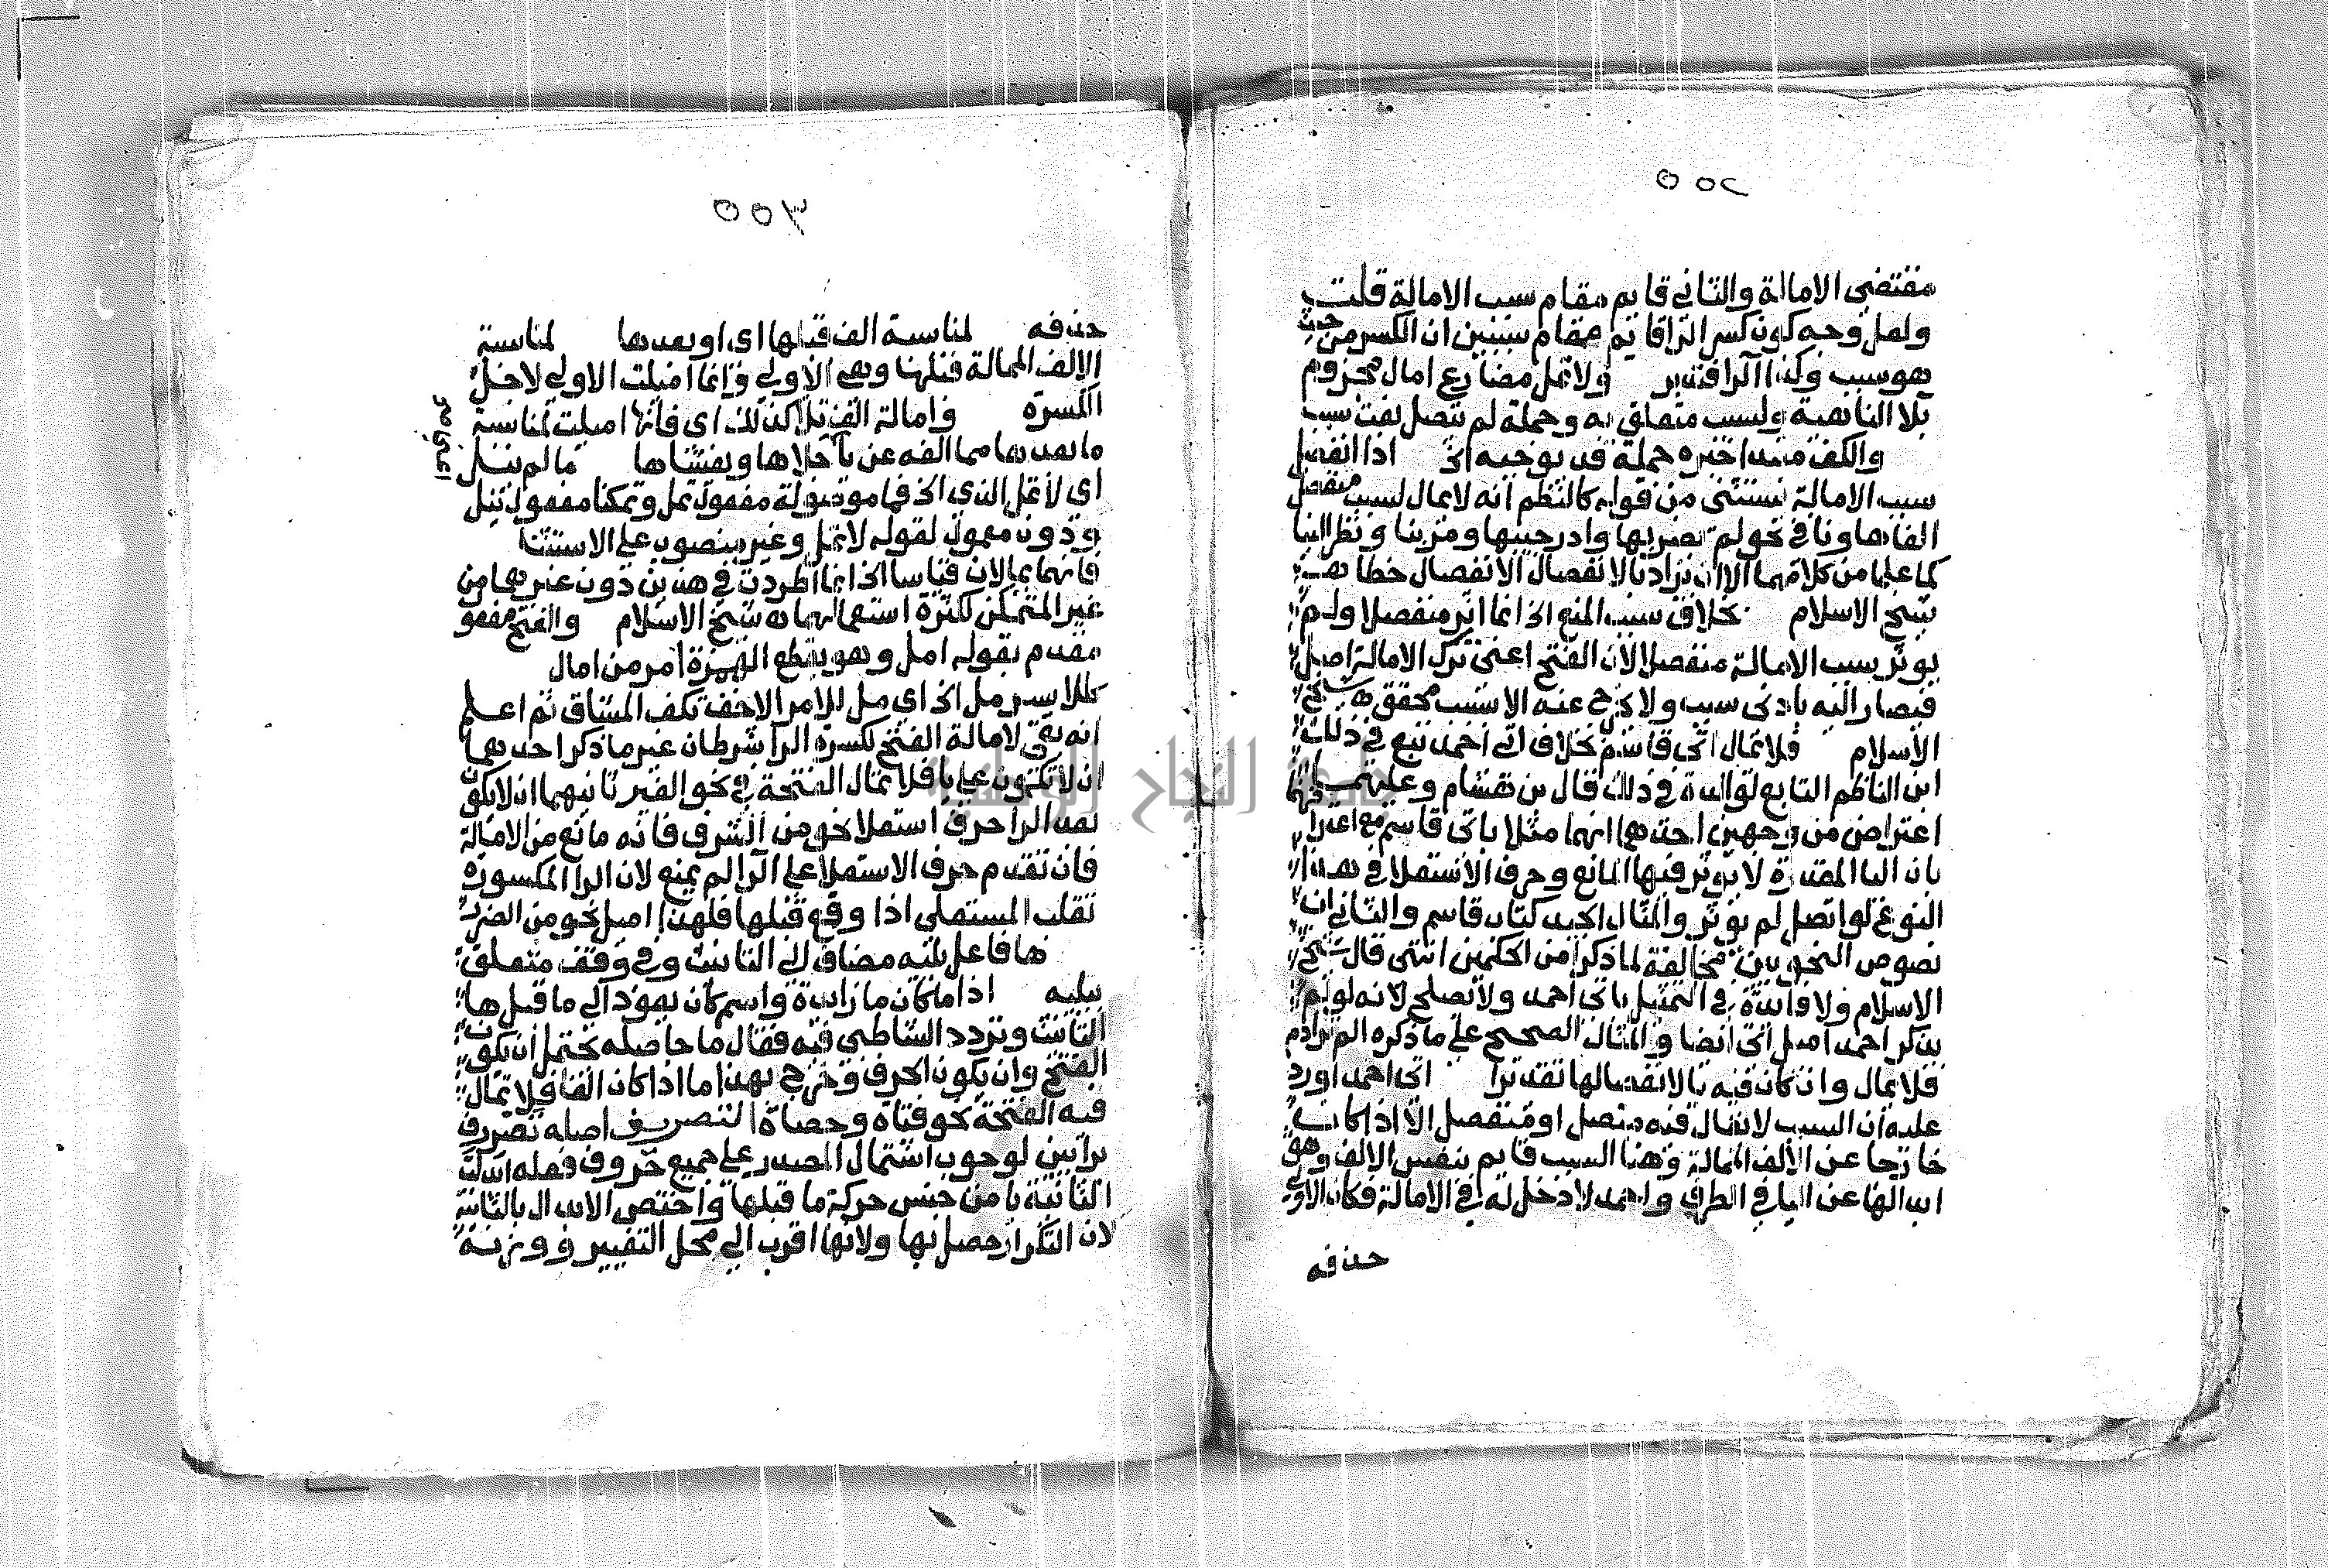 ٥٥٢
مقتضى الامالة والثانى قايم مقام سبب الامالة قلت
ولعل وجه كون كسر الراقايم مقام سببين ان الكسر من حيث
هو سبب وكذا الرا فتدبر ولا تمل مضارع امال مجزوم
بلا الناهية ولسبب متعلق به وجملة لم يتصل نعت سبب
والكف مبتدا خبره جملة قد يوجبه الخ اذا انفصل
سبب الامالة يستثنى من قوله كالنظم انه لا يمال لسبب منفصل
الفاها ونا فى نحو لم يضربها وادر جيبها ومر بنا ونظر الينا
كما علما من كلامهما الا ان يراد بالانفصال الانفصال خطا
شيخ الاسلام بخلاف سبب المنع الخ انما اثر منفصلا ولم
يوثر سبب الامالة منفصلا لان الفتح اعنى ترك الامالة اصل
فيصار اليه بادنى سبب ولا يخرج عنه الا لسبب محقق شيخ
الاسلام فلا تمال اتى قاسم بخلاف اتى احمد تبع فى ذلك
ابن الناظم التابع لوالده فى ذلك قال بن هشام وعليهما
اعتراض من وجهين احدهما انهما مثلا باتى قاسم مع اعترا فهما
بان اليا المقدرة لا يوثر فيها المانع وحرف الاستعلا فى هذا
النوع لو اتصل لم يوثر والمثال الجيد كتاب قاسم والثانى ان
نصوص النحويين مخالفة لما ذكرا من الحكمين انتهى قال شيخ
الاسلام ولا فائدة فى التمثيل باتى احمد ولا تصلح لانه لو لم
يذكر احمد اميل اتى ايضا والمثال الصحيح على ما ذكره المرادى
فلا يمال وان كان فيه يا لانفصالها تقديرا اتى احمد اورد
عليه ان السبب لا يقال فيه متصل او منفصل الا اذا كان
خارجا عن الالف الممالة وهذا السبب قايم بنفس الالف وهو
ابدالها عن اليا فى الطرف واحمد لا دخل له فى الامالة فكان الاولى
حذفه
٥٥٣
حذفه لمناسبة الف قبلها اى او بعدها لمناسبة
الالف الممالة قبلها وهى الاولى وانما اميلت الاولى لاجل
الكسرة وامالة الف تلا كذلك اى فانها اميلت لمناسبة
ما بعدها مما الفه عن يا جلاها ويغشاها ما لم ينل
اى لا تمل الذى الخ فما موصولة مفعول تمل وتمكنا مفعول ينل
ودون معمول لقوله لا تمل وغير منصوب على الاستثنا
فانهما يمالان قياسا الخ انما اطردت فى هذين دون غيرهما من
غير المتمكن لكثرة استعمالهما ه شيخ الاسلام والفتح مفعو
مقدم بقوله امل وهو بقطع الهمزة امر من امال
كللايسر مل الخ اى مل للامر الاخف تكف المشاق ثم اعلم
انه بقى لامالة الفتح لكسرة الرا شرطان غير ما ذكر احدهما
ان لا تكون على يا فلا تمال الفتحة فى نحو الغير ثانيهما ان لا يكون
بعد الرا حرف استعلا نحو من الشرق فانه مانع من الامالة
فان تقدم حرف الاستعلا على الرا لم يمنع لان الرا المكسورة
تغلب المستعلى اذا وقع قبلها فلهذا اميل نحو من الضرر
ها فاعل يليه مضاف الى التانيث وفى وقف متعلق
بيليه اذا ما كان ما زائدة واسم كان يعود الى ما قبل ها
التانيث وتردد الشاطبى فيه فقال ما حاصله يحتمل ان يكون
الفتح وان يكون الحرف وخرج بهذا ما اذا كان الفا فلا تمال
فيه الفتحة نحو فتاة وحصاة التصريف اصله تصررف
براين لوجوب اشتمال المصدر على جميع حروف فعله ابدلت
الثانية يا من جنس حركة ما قبلها واختص الابدال بالثانية
لان التكرار حصل بها ولانها اقرب الى محل التغيير ووزنه